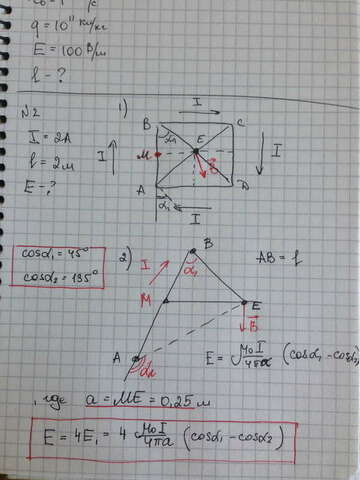 q = 10¹¹ Кл/кг
E = 100 В/м
l - ?
№2
1)
I
B
C
α₁
E
I = 2A
l = 2м
E - ?
I
M
B⃗
I
A
D
α₁
I
cosα₁ = 45°
cosα₂ = 135°
2)
I
B
α₁
AB = l
M
E
B⃗
A
α₂
E = μ₀I/4πa (cosα₁ - cosα₂)
, где a = ME = 0,25 м
E = 4E₁ = 4 μ₀I/4πa (cosα₁ - cosα₂)